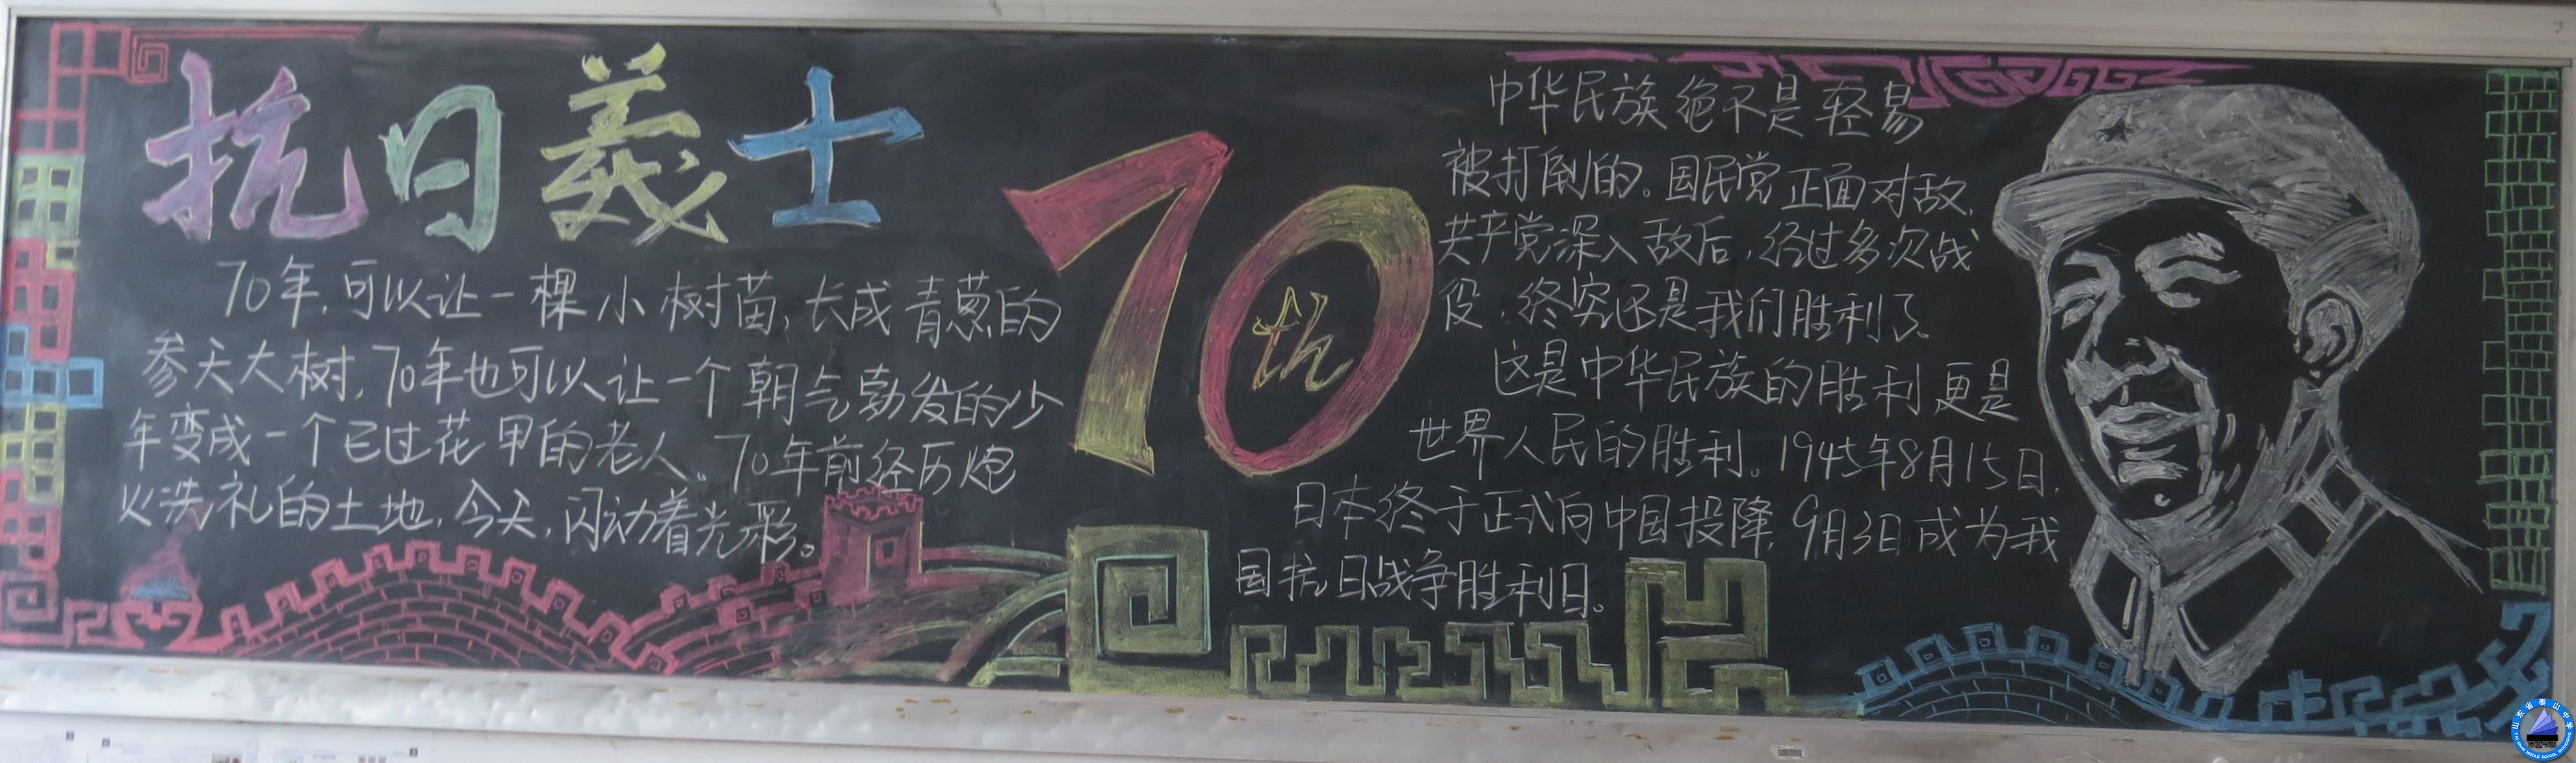 抗日義士
70年,可以让一棵小树苗,长成青葱的
参天大树,70年也可以让一个朝气勃发的少
年变成一个已过花甲的老人。70年前经历炮
火洗礼的土地,今天,闪动着光彩。
70
th
中华民族绝不是轻易
被打倒的。国民党正面对敌,
共产党深入敌后,经过多次战
役,终究还是我们胜利了。
这是中华民族的胜利更是
世界人民的胜利。1945年8月15日,
日本终于正式向中国投降,9月3日成为我
国抗日战争胜利日。
山东省泰山中学